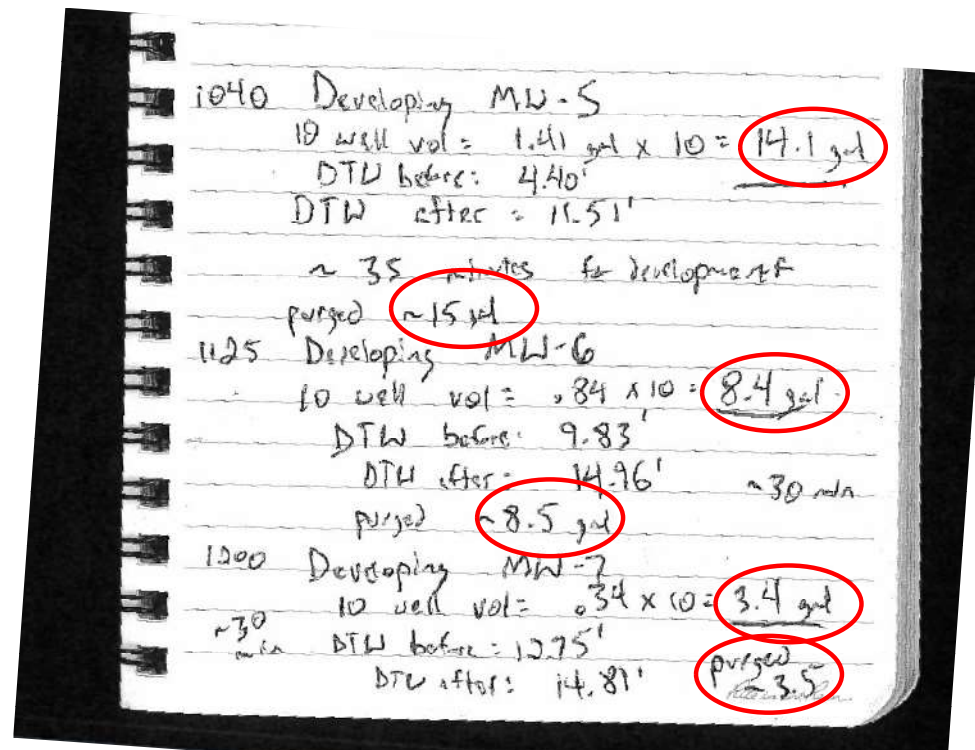 1040 Developing MW-5
10 well vol = 1.41 gal x 10 = 14.1 gal
DTW before: 4.40'
DTW after = 11.51'
~ 35 minutes for development
purged ~15 gal
1125 Developing MW-6
10 well vol = .84 x 10 = 8.4 gal
DTW before: 9.83'
DTW after: 14.96' ~30 min
purged ~8.5 gal
1200 Developing MW-7
10 well vol = .34 x 10 = 3.4 gal
~30 min DTW before: 12.75'
DTW after: 14.81' purged ~3.5